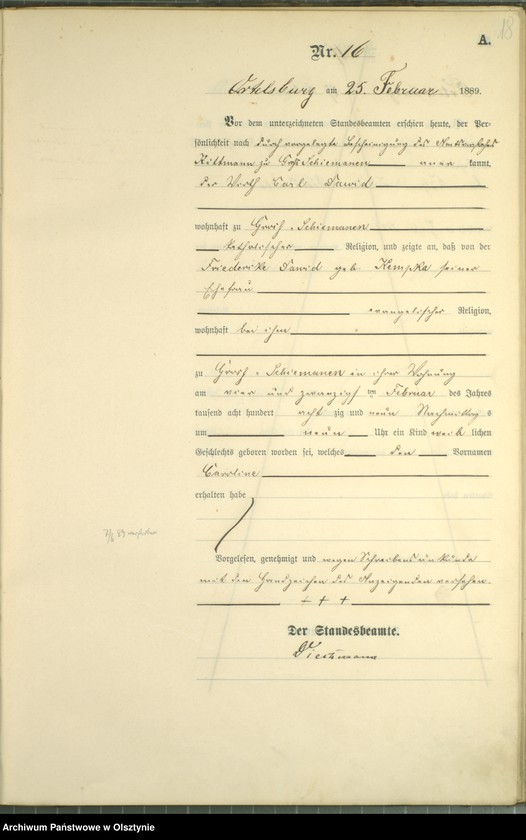 18
A.
Nr. 16
Ortelsburg am 25. Februar 1889.
Vor dem unterzeichneten Standesbeamten erschien heute, der Per-
sönlichkeit nach durch vorgelegte Bescheinigung des
Kittmann zu Groß Schiemanen aner kannt,
der Wirth Carl Dawid
wohnhaft zu Groß-Schiemanen
katholischer Religion, und zeigte an, daß von der
Friederike Dawid geb. Kempka seiner
Ehefrau
evangelischer Religion,
wohnhaft bei ihm
zu Groß-Schiemanen in ihrer Wohnung
am vier und zwanzigsten Februar des Jahres
tausend acht hundert acht zig und neun Nachmittag s
um neun Uhr ein Kind weib lichen
Geschlechts geboren worden sei, welches den Vornamen
Caroline
erhalten habe
Vorgelesen, genehmigt und wegen Schreibensunkunde
mit den Handzeichen des Anzeigenden versehen.
+ + +
Der Standesbeamte.
Archiwum Państwowe w Olsztynie